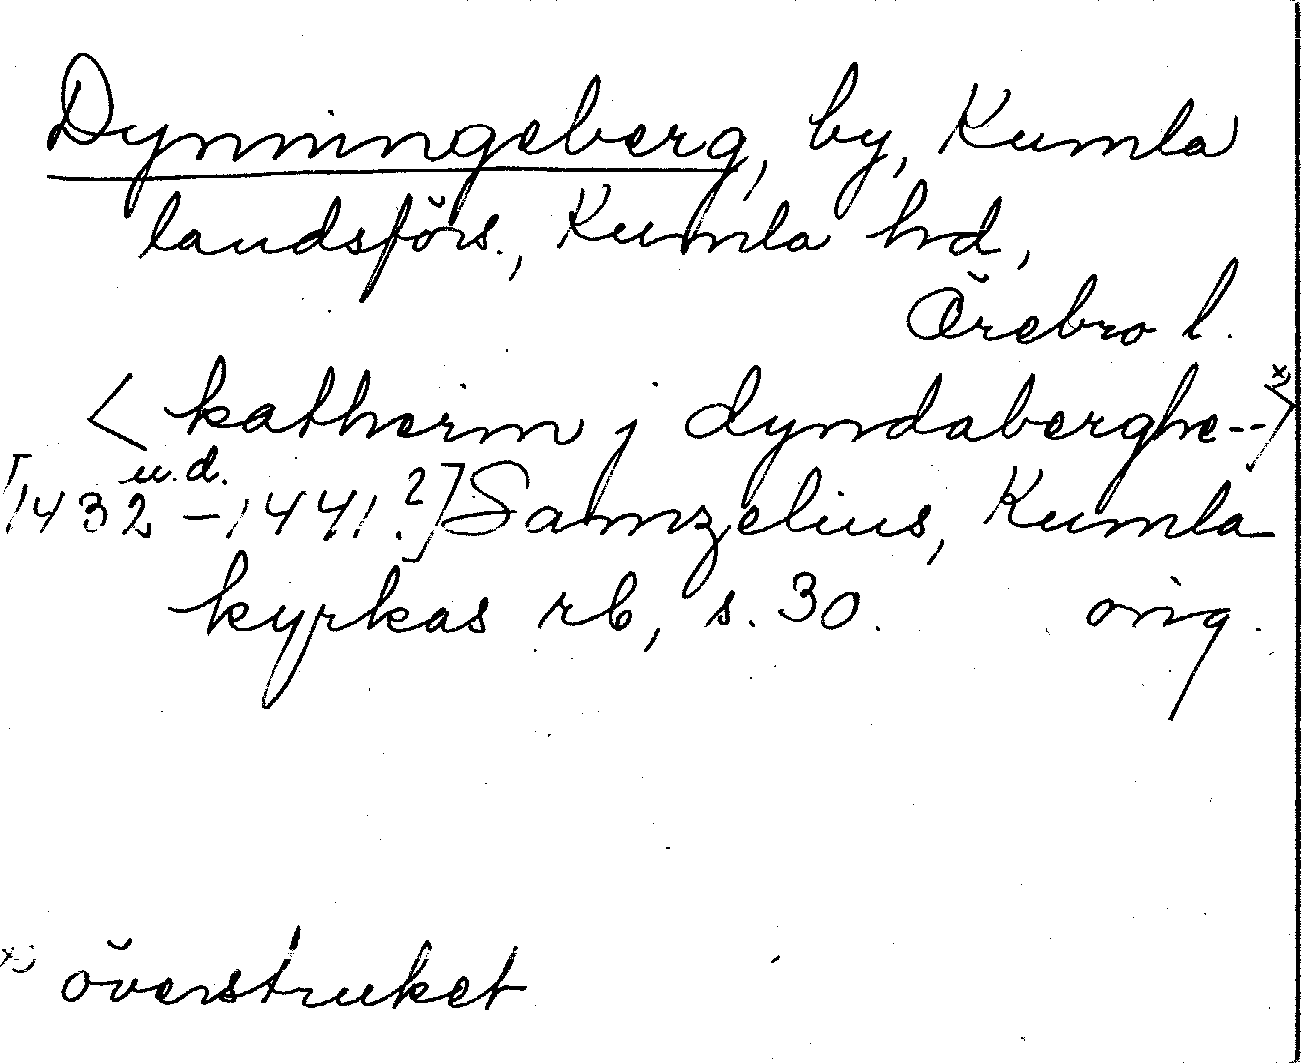 Dynningeberg, by, Kumla
landsförs., Kumla hd,
Örebro l.
< katherin j dyndaberghe--> x)
u.d.
[1432 – 1441.?] Samzelius, Kumla
kyrkas rb, s. 30. orig.
x) överstruket